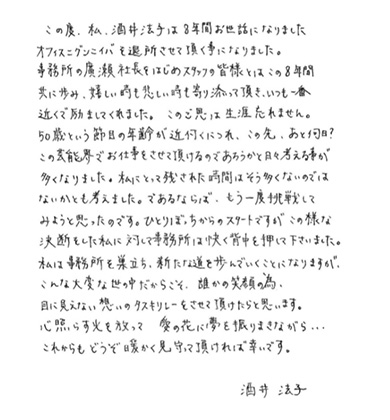 この度、私、酒井法子は8年間お世話になりました
オフィスニグンニイバを退所させて頂く事になりました。
事務所の廣瀬社長をはじめスタッフの皆様とはこの8年間
共に歩み、嬉しい時も悲しい時も寄り添って頂き、いつも一番
近くで励ましてくれました。このご恩は生涯忘れません。
50歳という節目の年齢が近付くにつれ、この先、あと何日?
この芸能界でお仕事をさせて頂けるのであろうかと日々考える事が
多くなりました。私にとって残された時間はそう多くないのでは
ないかとも考えました。であるならば、もう一度挑戦して
みようと思ったのです。ひとりぼっちからのスタートですが この様な
決断をした私に対して事務所は快く背中を押して下さいました。
私は事務所を巣立ち、新たな道を歩んでいくことになりますが、
こんな大変な世の中だからこそ、誰かの笑顔の為、
目に見えない想いのタスキリレーをさせて頂けたらと思います。
心照らす火を放って 愛の花に夢を振りまきながら...
これからもどうぞ暖かく見守って頂ければ幸いです。
酒井 法子